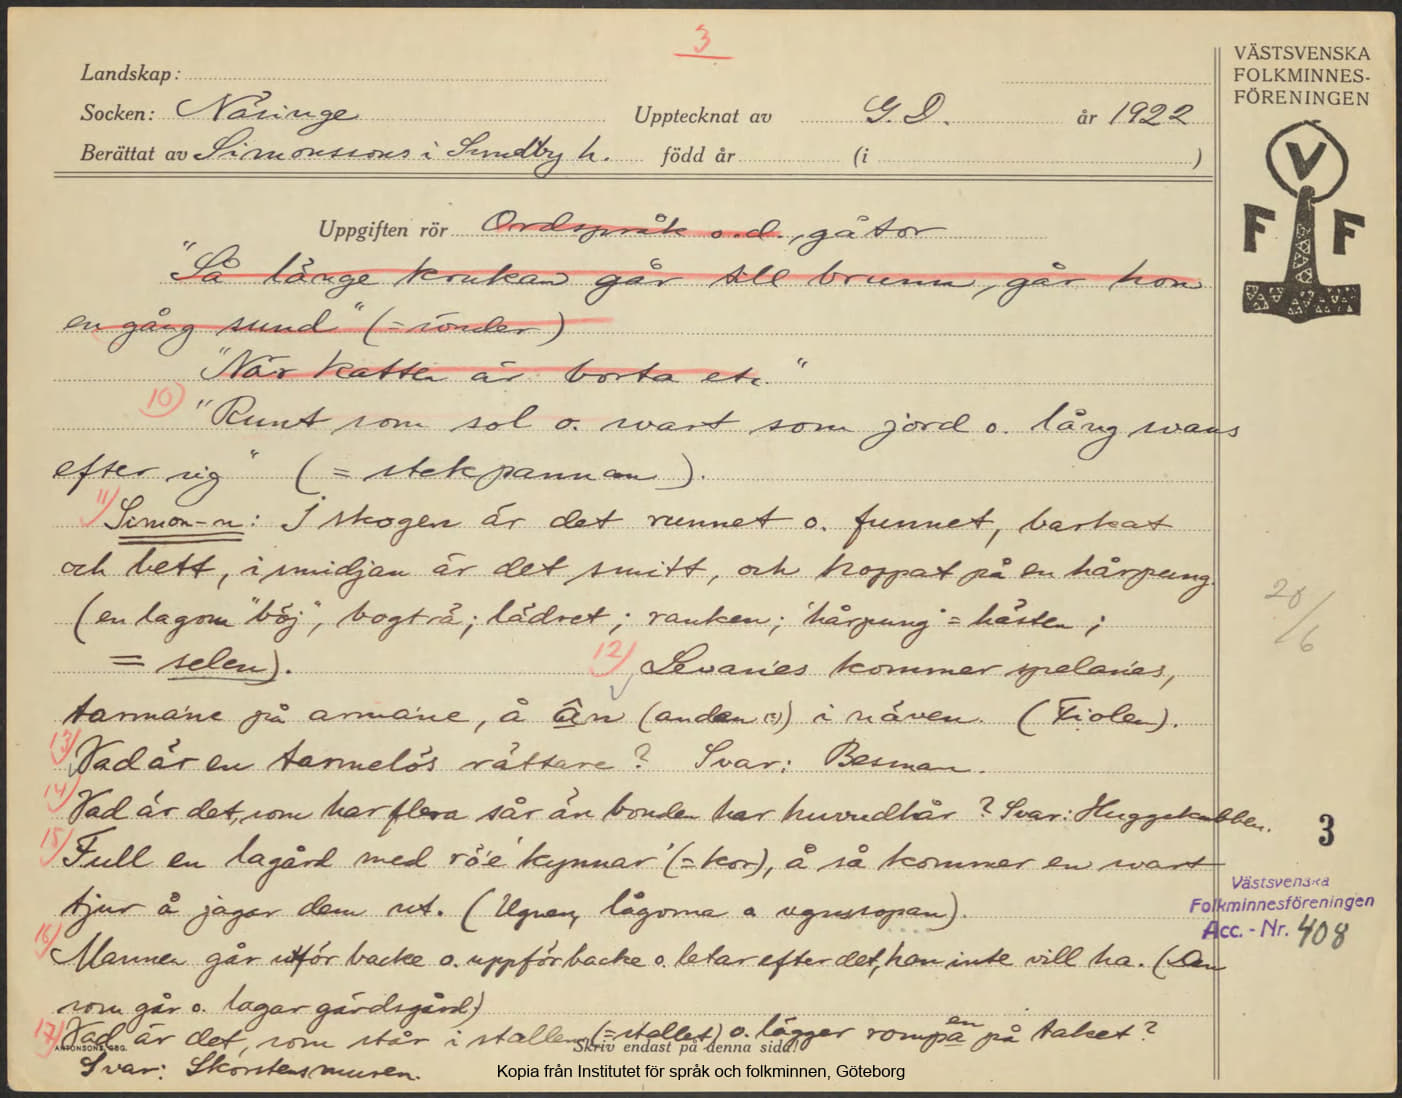 3
VÄSTSVENSKA
FOLKMINNES-
FÖRENINGEN
V
F F
Landskap:
Socken: Näsinge Upptecknat av G. D. år 1922
Berättat av Simonssons i Sundby h. född år (i )
Uppgiften rör Ordspråk o.d., gåtor
"Så länge krukan går till brunn, går hon
en gång sund" (= sönder)
"När katten är borta etc."
10) "Runt som sol o. svart som jord o. lång svans
efter sig" (= stekpannan).
11) Simon-n: I skogen är det runnet o. funnet, barkat
och bett, i smidjan är det smitt, och hoppat på en hårpung.
(en lagom "böj", bogträ; lädret; ranken; 'hårpung' = hästen;
= selen).
12) Levanes kommer spelanes,
tarmane på armane, å ân (anden (?)) i näven. (Fiolen).
13) Vad är en tarmelös rättare? Svar: Besman.
14) Vad är det, som har flera sår än bonden har huvudhår? Svar: Huggekubben.
15) Full en lagård med rö'e 'kynnar' (= kor), å så kommer en svart
tjur å jagar dem ut. (Ugnen, lågorna o ugnssopan).
16) Mannen går utför backe o. uppför backe o. letar efter det, han inte vill ha. (Den
som går o. lagar gärdsgård)
17) Vad är det, som står i stallen (= stallet) o. lägger rompa en på taket?
Svar: Skorstensmuren.
20/6
3
Västsvenska
Folkminnesföreningen
Acc. - Nr. 408
ANTONSONS, GBG.
Skriv endast på denna sida!
Kopia från Institutet för språk och folkminnen, Göteborg